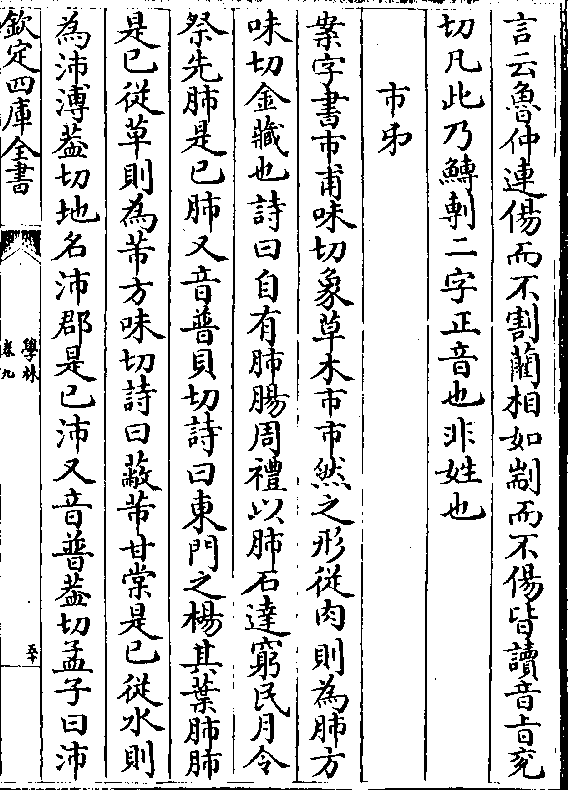 言云魯仲連傷而不割藺相如剬而不傷皆讀音㫖兖
切凡此乃鱄剸二字正音也非姓也
市𠂔
案字書市甫味切象草木市市然之形從肉則為肺方
味切金藏也詩曰自有肺腸周禮以肺石達窮民月令
祭先肺是已肺又音普貝切詩曰東門之楊其葉肺肺
是已從草則為芾方味切詩曰蔽芾甘棠是已從水則
為沛溥葢切地名沛郡是已沛又音普葢切孟子曰沛
欽定四庫全書
學林
卷九